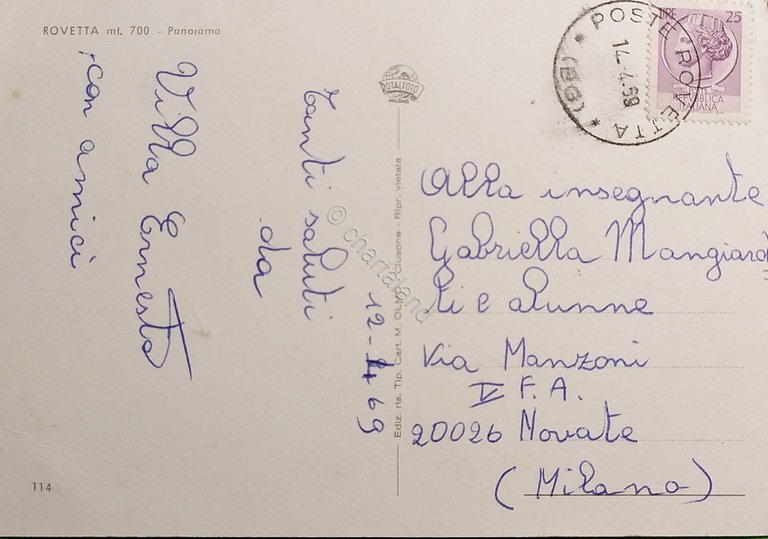 ROVETTA mt. 700 - Panorama
12-4 69
Tanti saluti
da
Villa Ernesta
con amici
114
TOTALFOTO
MILANO
Ediz. ris. Tip. Cart. M. Clusone - Ripr. vietata
© chartaland
POSTE ROVETTA
(BG)
14-4.69
LIRE 25
REPUBBLICA
ITALIANA
Alla insegnante
Gabriella Mangiarot
ti e alunne
Via Manzoni
V F. A.
20026 Novate
(Milano)